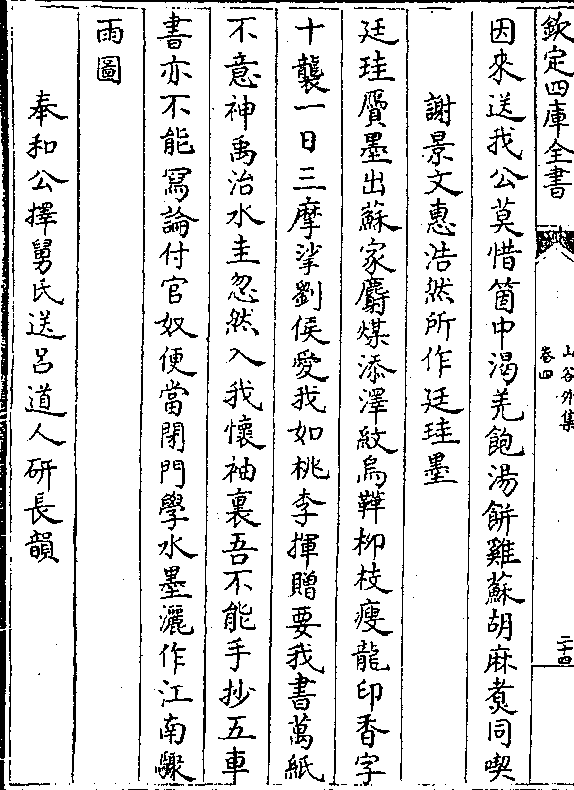 欽定四庫全書
山谷外集
卷四
二十四
因來送我公莫惜箇中渴羌飽湯餅雞蘇胡麻煑同喫
謝景文惠浩然所作廷珪墨
廷珪贋墨出蘇家麝煤添澤紋烏靴柳枝瘦龍印香字
十襲一日三摩挲劉侯愛我如桃李揮贈要我書萬紙
不意神禹治水圭忽然入我懷袖裏吾不能手抄五車
書亦不能寫論付官奴便當閉門學水墨灑作江南驟
雨圖
奉和公擇舅氏送呂道人研長韻